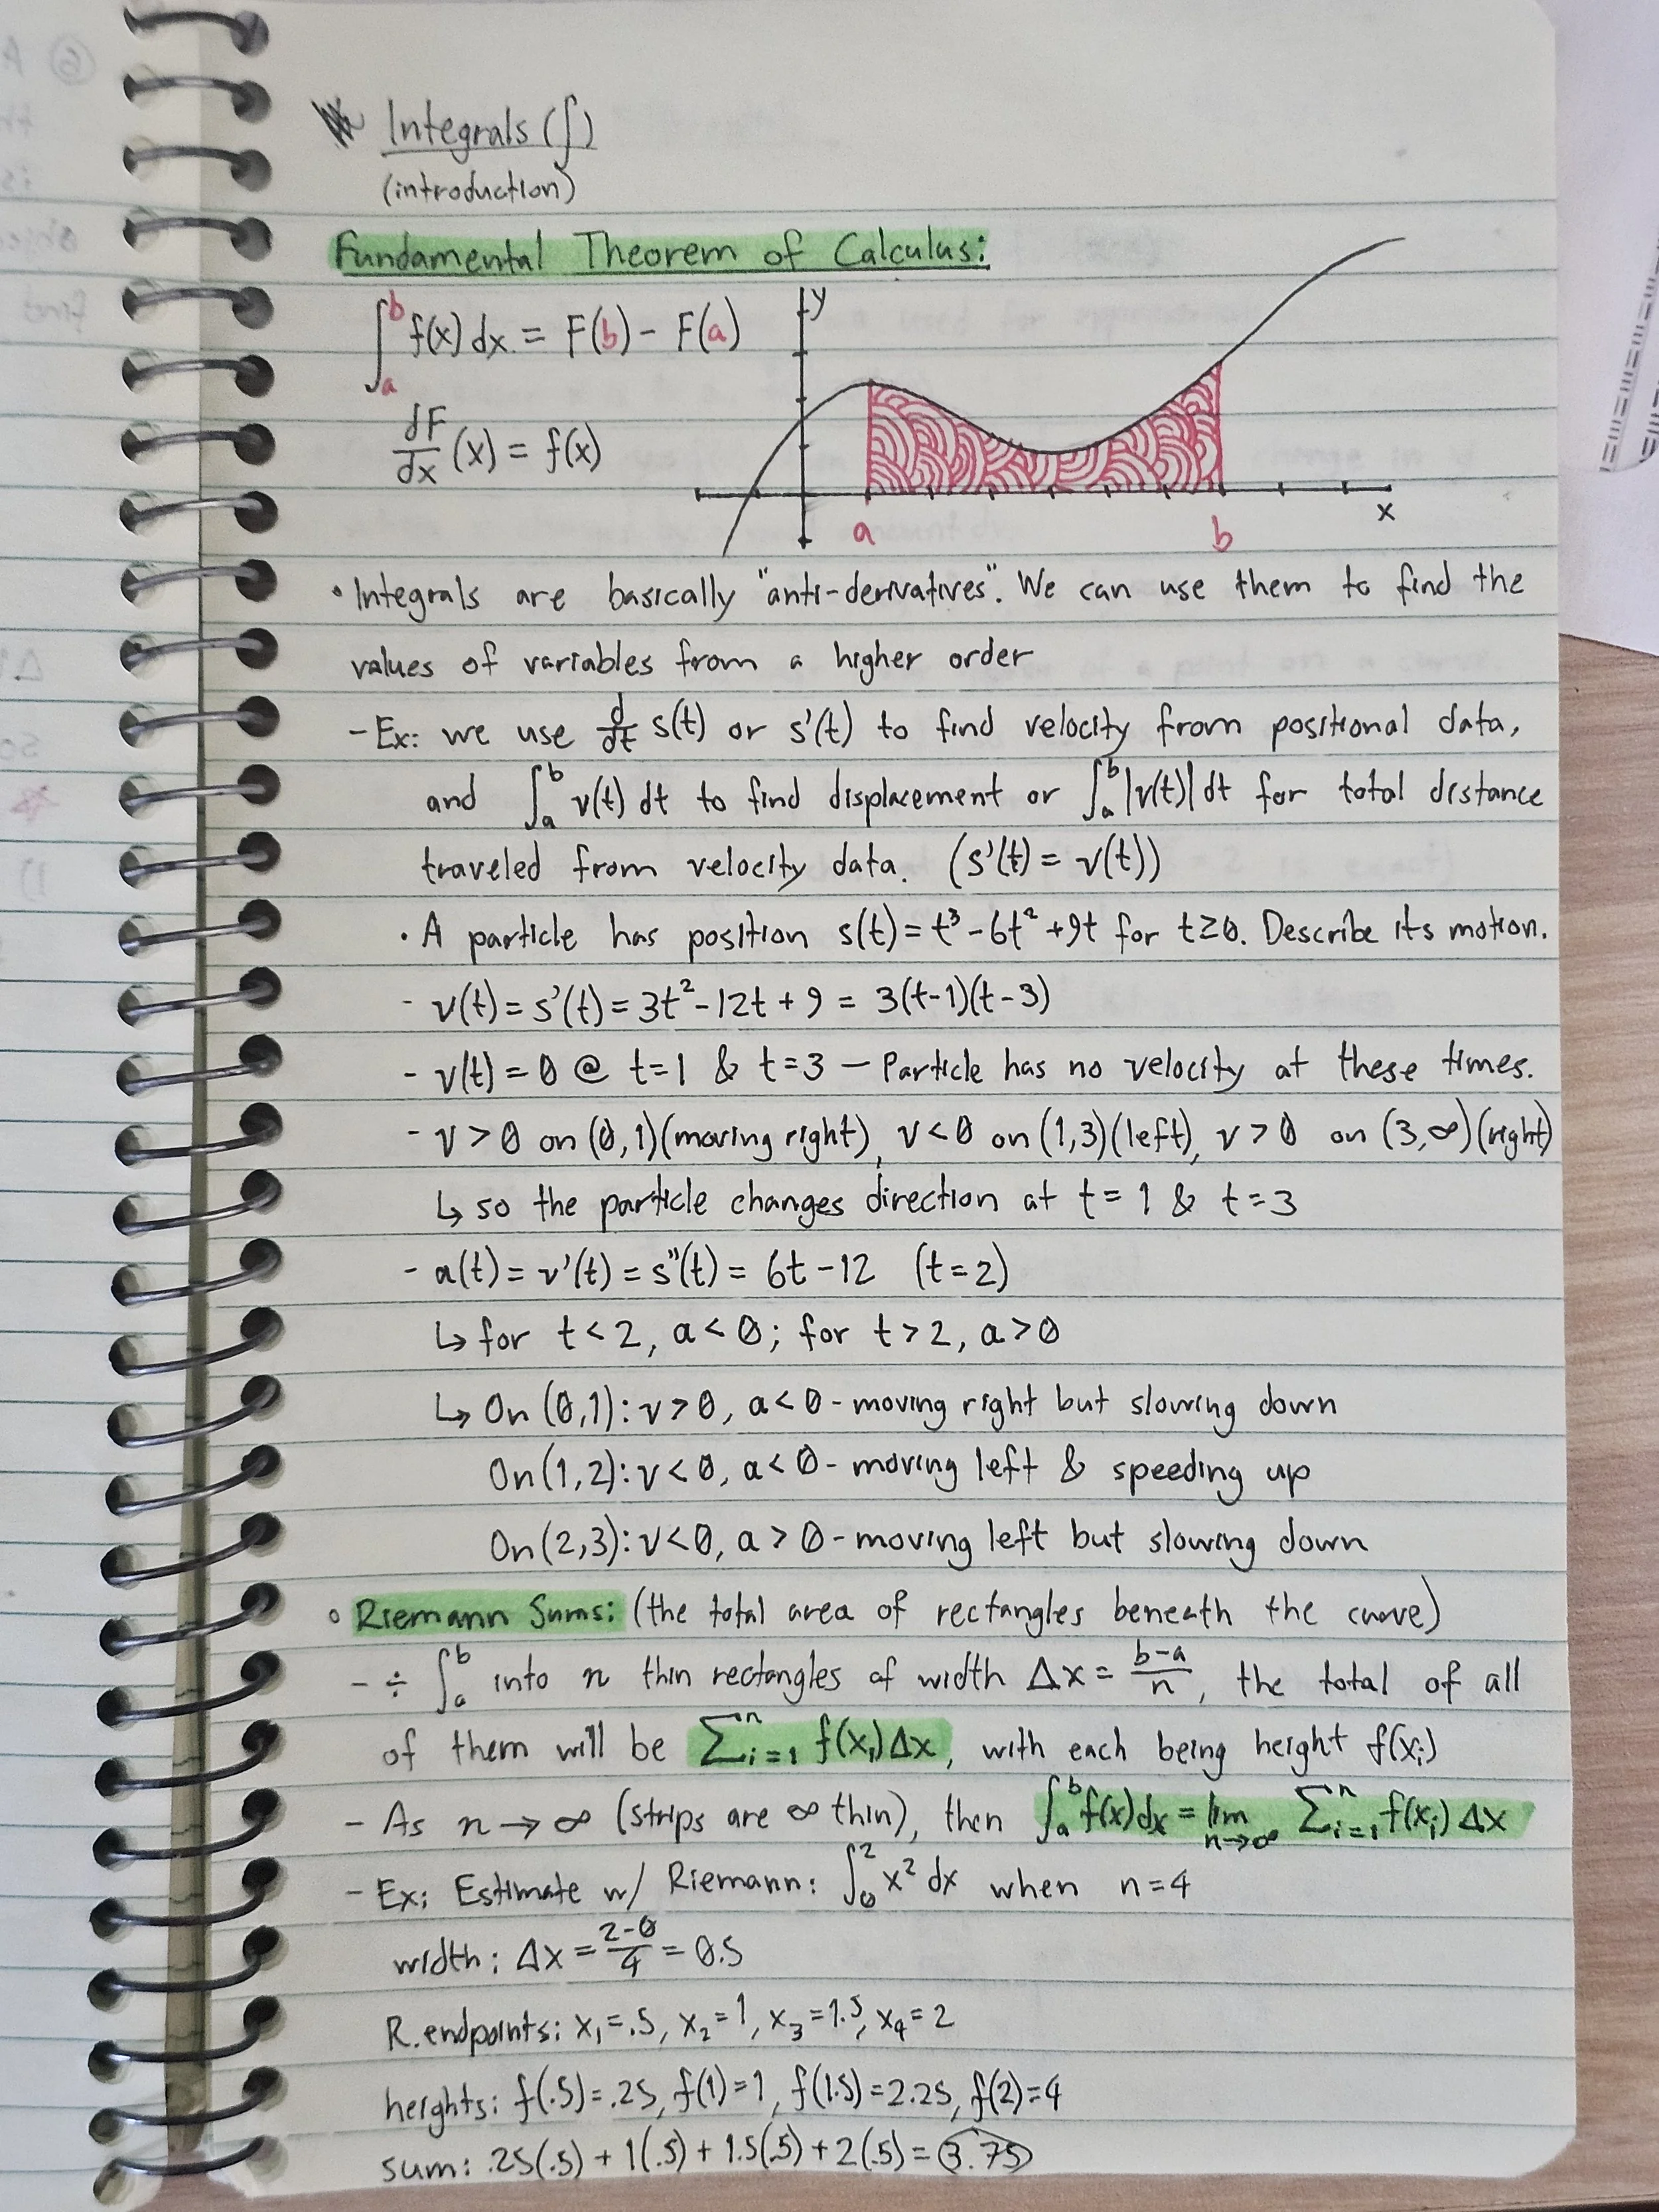 Integrals (∫)
(introduction)
Fundamental Theorem of Calculus:
∫_a^b f(x) dx = F(b) - F(a)
dF/dx (x) = f(x)
y
x
a
b
• Integrals are basically "anti-derivatives". We can use them to find the
values of variables from a higher order
- Ex: we use d/dt s(t) or s'(t) to find velocity from positional data,
and ∫_a^b v(t) dt to find displacement or ∫_a^b |v(t)| dt for total distance
traveled from velocity data. (s'(t) = v(t))
• A particle has position s(t) = t³ - 6t² + 9t for t ≥ 0. Describe its motion.
- v(t) = s'(t) = 3t² - 12t + 9 = 3(t-1)(t-3)
- v(t) = 0 @ t=1 & t=3 — Particle has no velocity at these times.
- v > 0 on (0,1)(moving right), v < 0 on (1,3)(left), v > 0 on (3,∞)(right)
↳ so the particle changes direction at t = 1 & t = 3
- a(t) = v'(t) = s''(t) = 6t - 12 (t=2)
↳ for t < 2, a < 0; for t > 2, a > 0
↳ On (0,1): v > 0, a < 0 - moving right but slowing down
On (1,2): v < 0, a < 0 - moving left & speeding up
On (2,3): v < 0, a > 0 - moving left but slowing down
∘ Riemann Sums: (the total area of rectangles beneath the curve)
- ÷ ∫_a^b into n thin rectangles of width Δx = (b-a)/n, the total of all
of them will be ∑_{i=1}^n f(x_i)Δx, with each being height f(x_i)
- As n → ∞ (strips are ∞ thin), then ∫_a^b f(x)dx = lim_{n→∞} ∑_{i=1}^n f(x_i) Δx
- Ex: Estimate w/ Riemann: ∫_0^2 x² dx when n=4
width: Δx = (2-0)/4 = 0.5
R. endpoints: x₁=.5, x₂=1, x₃=1.5, x₄=2
heights: f(.5)=.25, f(1)=1, f(1.5)=2.25, f(2)=4
sum: .25(.5) + 1(.5) + 1.5(.5) + 2(.5) = 3.75